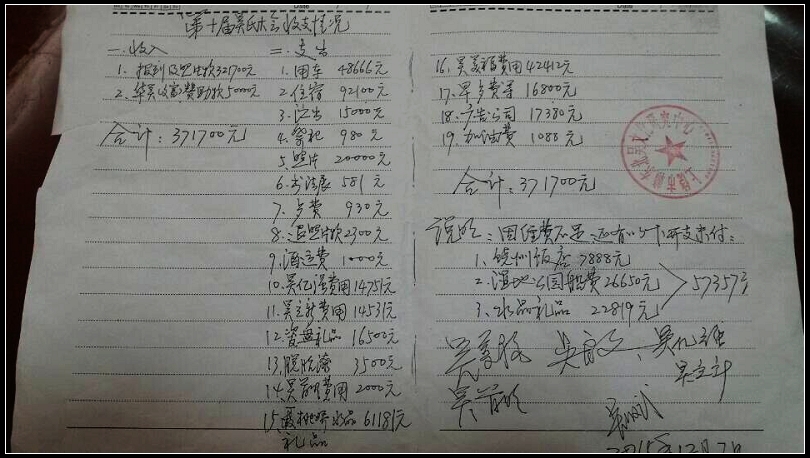 第十届吴氏大会收支情况
一.收入
1. 报到及照片款321700元
2. 华吴赞助款50000元
合计：371700元
二.支出
1. 用车 48666元
2. 住宿 92100元
3. 演出 15000元
4. 祭祀 980元
5. 照片 20000元
6. 书法展 581元
7. 点费 930元
8. 退照片款2300元
9. 酒运费 1000元
10. 吴亿温费用14751元
11. 吴立新费用14531元
12. 瓷盘礼品 16500元
13. 3500元
14. 吴前明费用 2000元
15. 水晶 61181元
礼品
16. 吴美福费用42412元
17. 早点费等 16800元
18. 广告公司 17380元
19. 加油费 1088元
合计：371700元
说明：因经费不足，还有以下开支未付：
1. 饶州饭店 7888元
2. 湿地公园船费26650元
3. 水晶礼品 22819元
57357元
吴前明
2015年12月7日